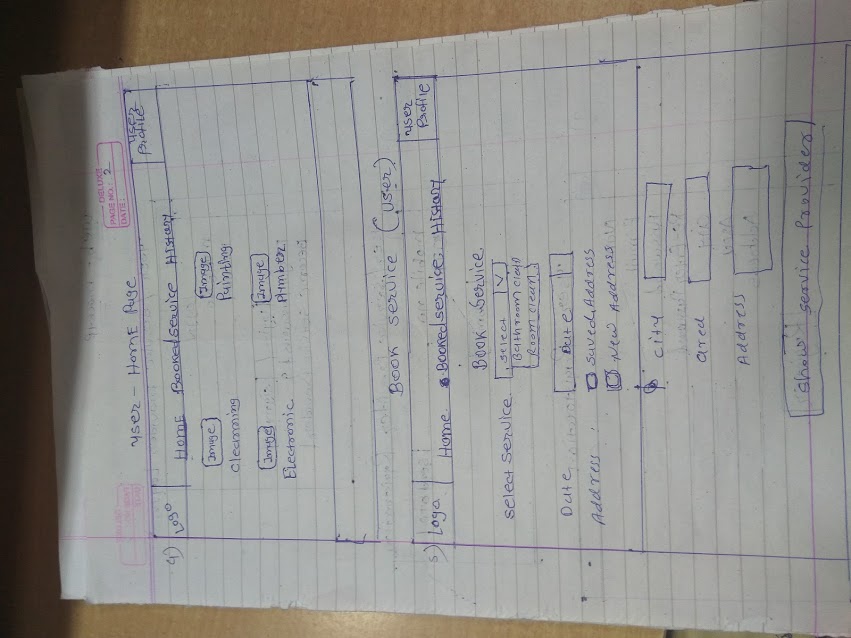 DELUXE
PAGE NO.: 2
DATE:
User - Home Page
4) Logo Home Booked service History User Profile
Image Image
Cleanning Painting
Image Image
Electronic Plumber
Book service (User)
5) Logo Home Booked service History User Profile
Book Service
Select Service Select
Bathroom clean
Room clean
Date Date
Address : Saved Address
New Address
City
area
Address
Show service Provider